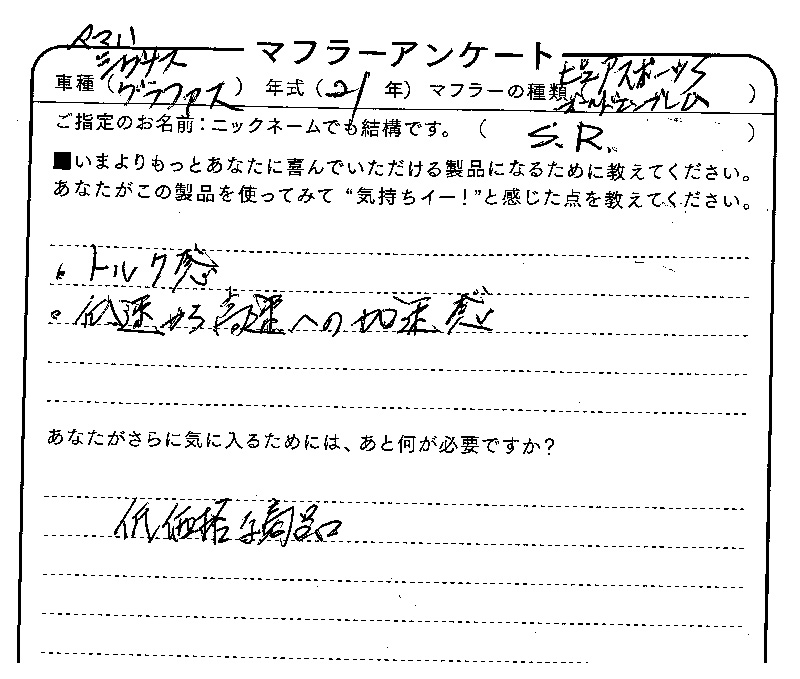 ヤマハ
シグナス
マフラーアンケート
車種（グラファス）　年式（21年）マフラーの種類（ピュアスポーツS
オールドエンブレム）
ご指定のお名前：ニックネームでも結構です。（ S.R. ）
■いまよりもっとあなたに喜んでいただける製品になるために教えてください。
あなたがこの製品を使ってみて“気持ちイー！”と感じた点を教えてください。
・トルク感
・低速から高速への加速感
あなたがさらに気に入るためには、あと何が必要ですか？
低価格な商品